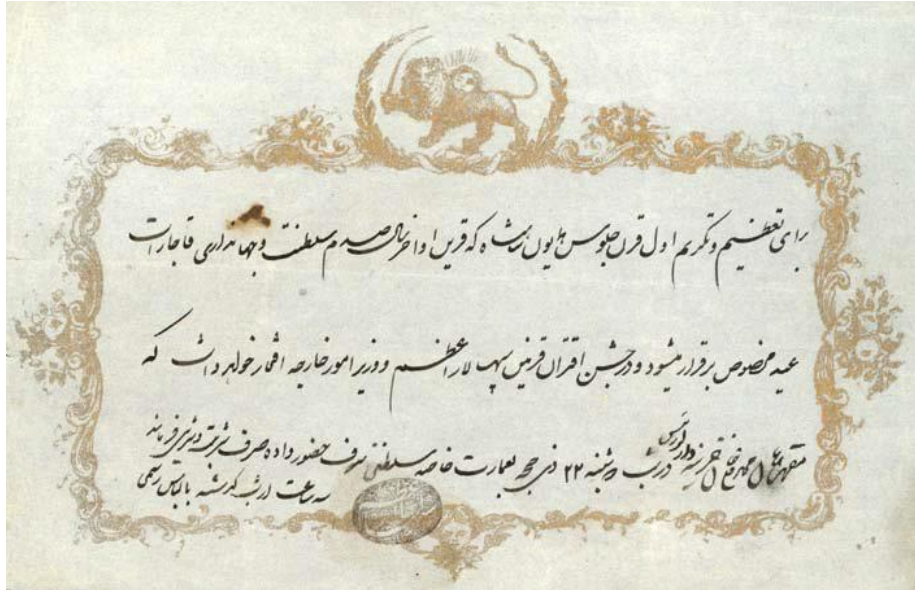 برای تعظیم و تکریم اول قرن جلوس همایون شاهنشاه که قرین اواخر سال صدم سلطنت و جهانداری قاجار است
عید مخصوص برقرار میشود و در جشن اقتران قرنین سپهسالار اعظم و وزیر امور خارجه افتخار خواهد داشت که
در شب دوشنبه ۲۲ ذی حجه بعمارت خاصه سلطنتی شرف حضور داده صرف شربت و شیرینی فرمایند
سه ساعت از شب گذشته با لباس رسمی